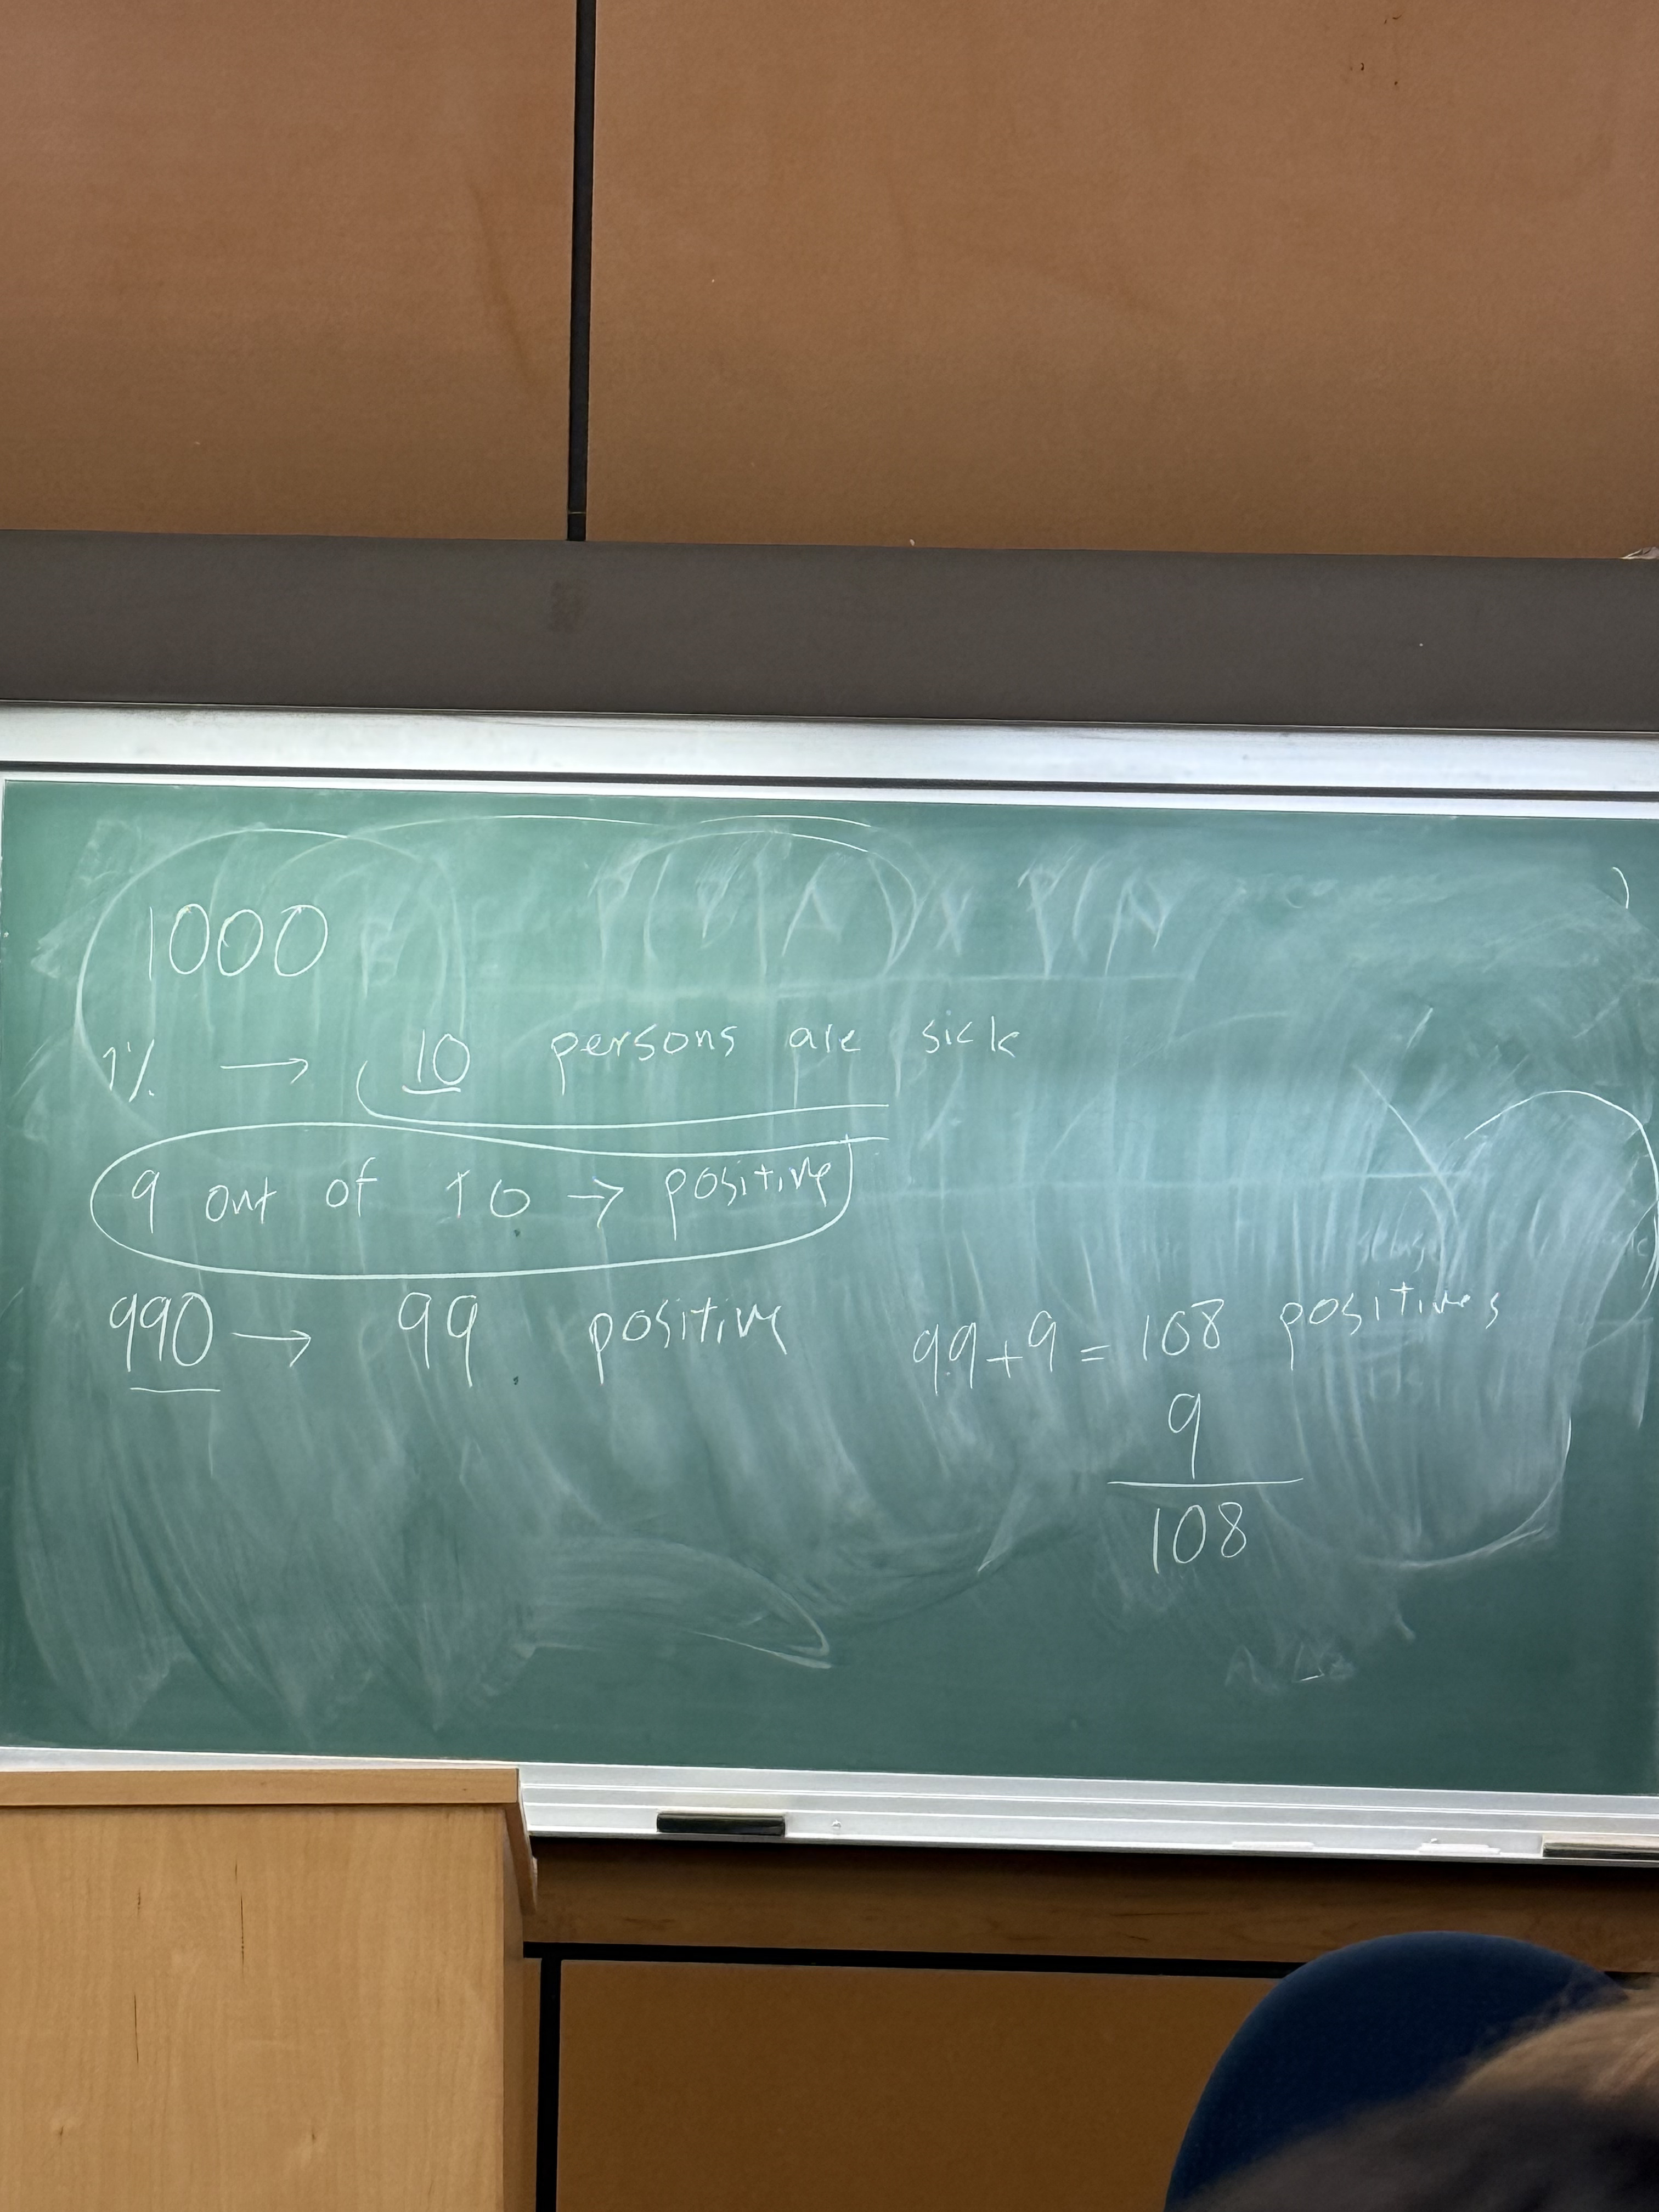 1000
1% → 10 persons are sick
9 out of 10 → positive
990 → 99 positive
99+9 = 108 positives
9
108